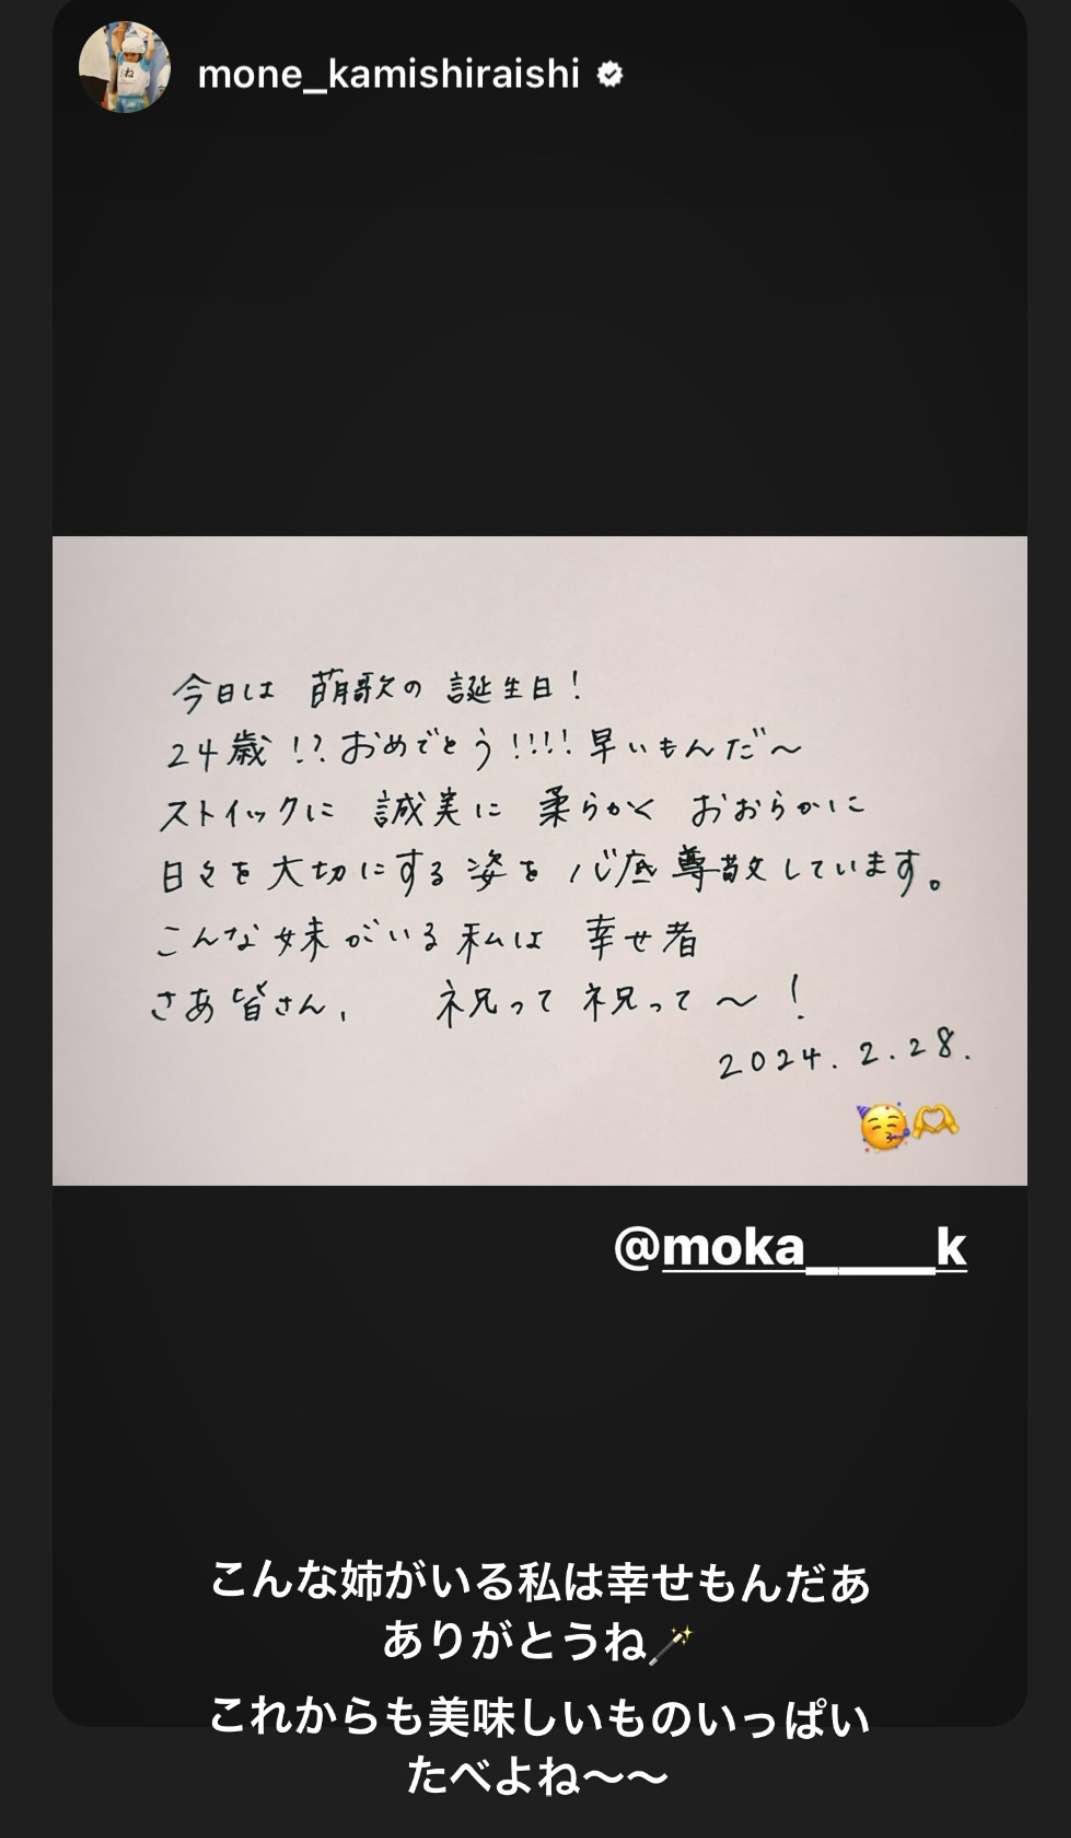 mone_kamishiraishi
今日は 萌歌の 誕生日！
24歳！？おめでとう！！！！早いもんだ〜
ストイックに 誠実に 柔らかく おおらかに
日々を大切にする姿を心底尊敬しています。
こんな妹がいる私は 幸せ者
さあ皆さん、 祝って祝って〜！
2024.2.28.
🥳🫶
@moka____k
こんな姉がいる私は幸せもんだあ
ありがとうね🪄
これからも美味しいものいっぱい
たべよね〜〜